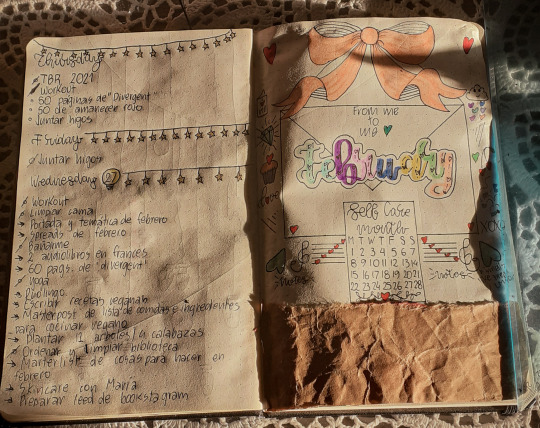 Thursday
TBR 2021
Workout
60 paginas de "Divergent"
50 de amanecer rojo
Juntar higos
Friday
Juntar higos
Wednesday 27
Workout
Limpiar cama
Portada y temática de febrero
Spreads de febrero
Bañarme
2 audiolibros en francés
60 pags. de "divergent"
Yoga
Duolingo
Escribir recetas veganas
Masterpost de lista de comidas e ingredientes
para cocinar vegano
Plantar 12 arbeles / a calabazas
Ordenar y limpiar biblioteca
Master list de cosas para hacer en
febrero
Skincare con María
Preparar feed de bookstagram
From me
to
me
february
Self Care
month
M T W T F S S
1 2 3 4 5 6 7
8 9 10 11 12 13 14
15 16 17 18 19 20 21
22 23 24 25 26 27 28
Notes
Notes